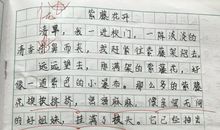 紫藤花开
清早，我一进校门，一阵淡淡的
清香扑鼻而长，我赶紧往紫藤架跑去。
远远望去，那满架的紫藤花，好
像一道紫色的小瀑布。那么多的紫藤
花挨挨挤挤，像无何无间
的好姐妹，挂满了枝头。它已经